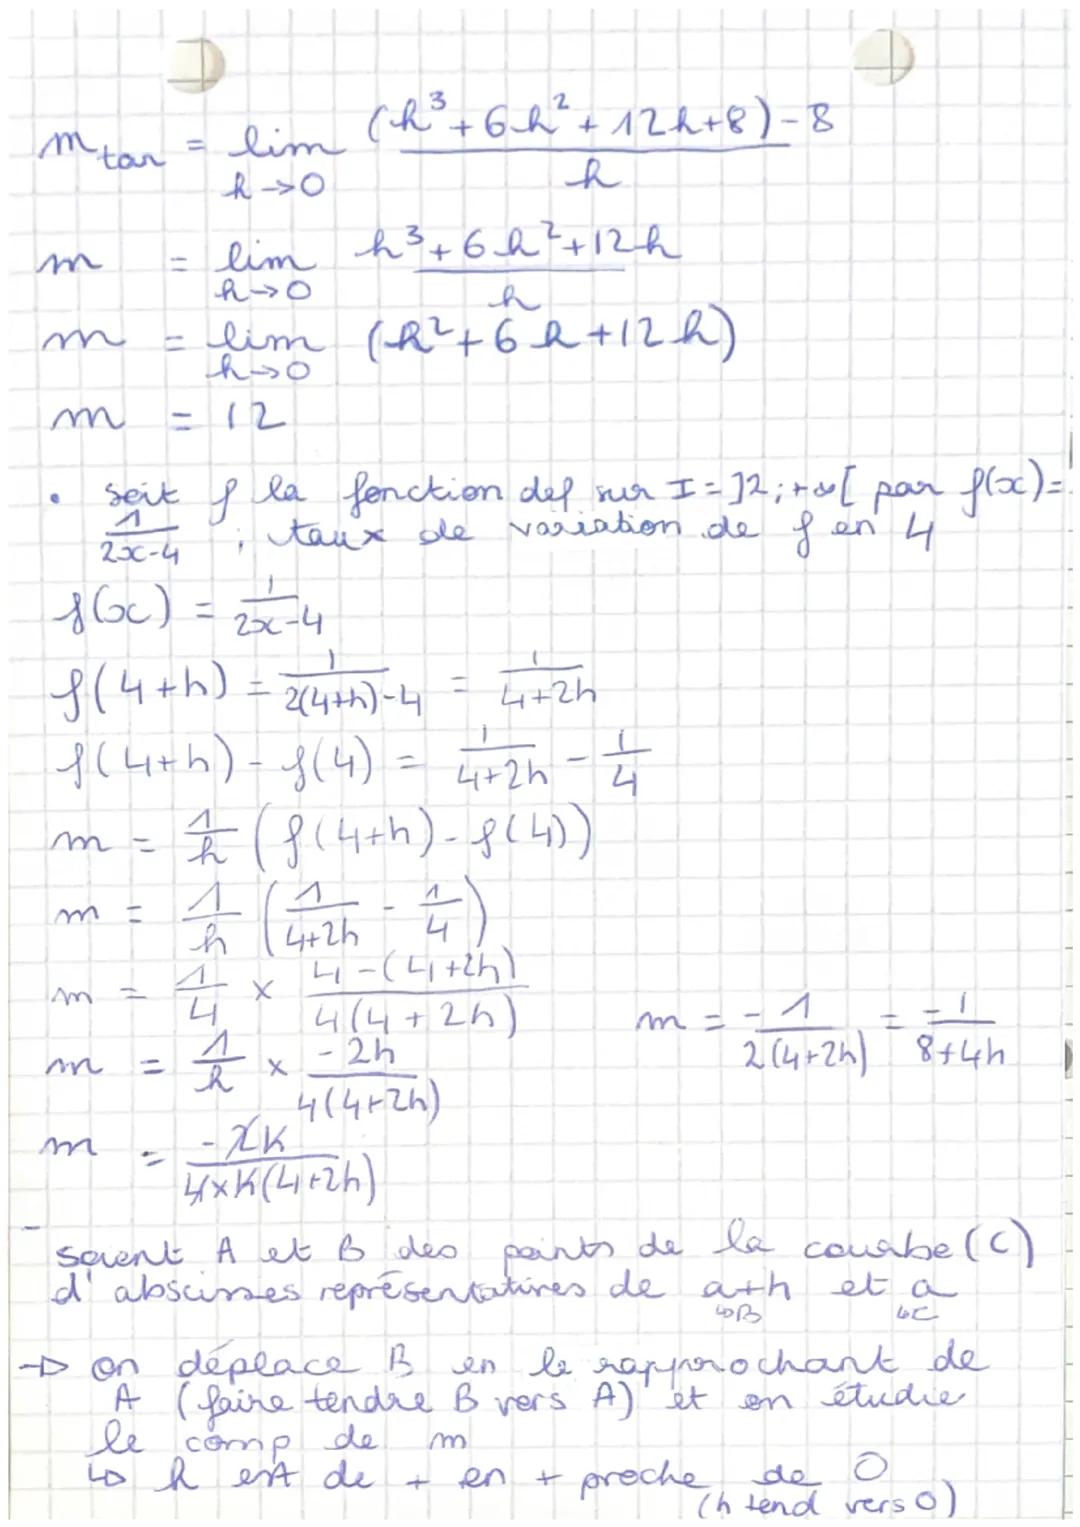 m tan = lim h→0 ((h³+6h²+12h+8)-8)/h
m = lim h→0 (h³+6h²+12h)/h
m = lim h→0 (h²+6h+12h)
m = 12
• soit f la fonction def sur I=]2;+∞[ par f(x)=
1/(2x-4) ; taux de variation de f en 4
f(x) = 1/(2x-4)
f(4+h) = 1/(2(4+h)-4) = 1/(4+2h)
f(4+h)-f(4) = 1/(4+2h) - 1/4
m = 1/h (f(4+h)-f(4))
m = 1/h (1/(4+2h) - 1/4)
m = 1/4 × (4-(4+2h))/(4(4+2h))
m = 1/h × -2h/(4(4+2h))
m = -2h/(4×h(4+2h))
m = -1/(2(4+2h)) = -1/(8+4h)
- soient A et B des points de la courbe (C)
d'abscisses représentatives de a+h et a
↳B ↳C
→ on déplace B en le rapprochant de
A (faire tendre B vers A) et on étudie
le comp de m
↳ h est de + en + proche de 0
(h tend vers 0)